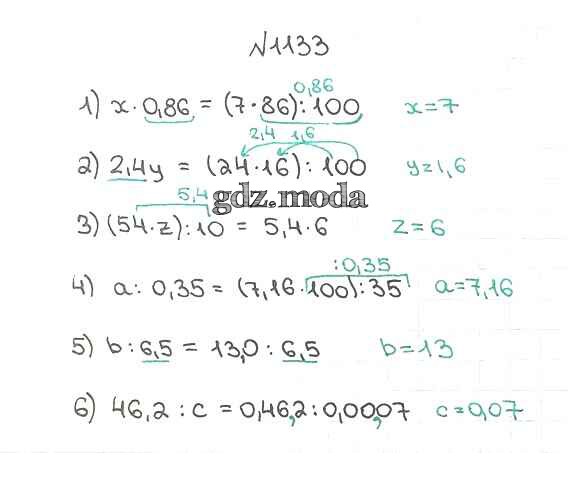 N1133
0,86
1) x · 0,86 = (7 · 86) : 100 x = 7
2,4 1,6
2) 2,4y = (24 · 16) : 100 y = 1,6
5,4 gdz.moda
3) (54 · z) : 10 = 5,4 · 6 z = 6
: 0,35
4) a : 0,35 = (7,16 · 100) : 35 a = 7,16
5) b : 6,5 = 13,0 : 6,5 b = 13
6) 46,2 : c = 0,46,2 : 0,00,07 c = 0,07